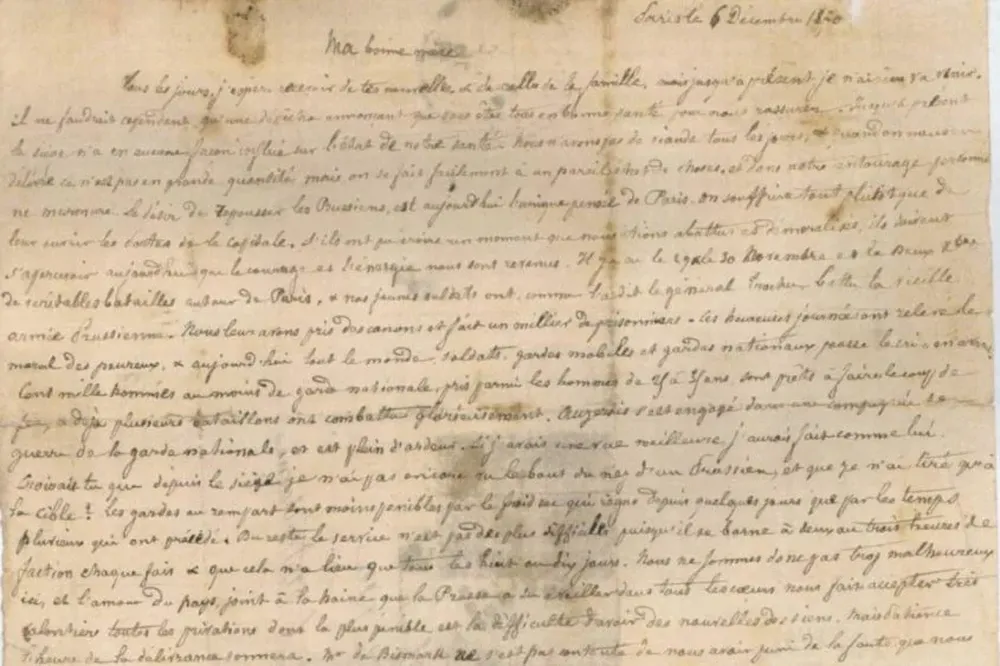 Paris le 6 Décembre 1870
Ma bonne mère
Tous les jours, j'espère recevoir de tes nouvelles & de celles de la famille, mais jusqu'à présent je n'ai rien vu venir.
il ne faudrait cependant qu'une dépêche annonçant que vous êtes tous en bonne santé pour nous rassurer. Jusqu'à présent
le siège n'a en aucune façon influé sur l'état de notre santé. Nous n'avons pas de viande tous les jours, & quand on nous en
délivre ce n'est pas en grande quantité mais on se fait facilement à un pareil état de choses, et dans notre entourage personne
ne murmure. Le désir de repousser les Prussiens, est aujourd'hui l'unique pensée de Paris. On souffrira tout plutôt que de
leur ouvrir les portes de la capitale. S'ils ont pu croire un moment que nous étions abattus et démoralisés, ils doivent
s'apercevoir aujourd'hui que le courage et l'énergie nous sont revenus. Il y a eu le 29 & le 30 Novembre et le deux Xbre
de véritables batailles autour de Paris, & nos jeunes soldats ont, comme l'a dit le général Trochu battu la vieille
armée Prussienne. Nous leur avons pris des canons et fait un millier de prisonniers. Ces heureuses journées ont relevé le
moral des peureux, & aujourd'hui tout le monde, soldats, gardes mobiles et gardes nationaux pousse le cri : en avant
Cent mille hommes au moins de garde nationale, pris parmi les hommes de 25 à 35 ans, sont prêts à faire le coup de
feu, & déjà plusieurs bataillons ont combattu glorieusement. s'est engagé dans une compagnie de
guerre de la garde nationale, et est plein d'ardeur. Si j'avais une vue meilleure, j'aurais fait comme lui.
Croirais tu que depuis le siège je n'ai pas encore vu le bout du nez d'un Prussien, et que je n'ai tiré qu'à
la cible ! Les gardes au rempart sont moins pénibles par le froid sec qui règne depuis quelques jours que par les temps
pluvieux qui ont précédé. Du reste le service n'est pas des plus difficiles puisqu'il se borne à deux ou trois heures de
faction chaque fois & que cela n'a lieu que tous les huit ou dix jours. Nous ne sommes donc pas trop malheureux
ici, et l'amour du pays, joint à la haine que la Prusse a su éveiller dans tous les cœurs nous fait accepter très
volontiers toutes les privations dont la plus pénible est la difficulté d'avoir des nouvelles des siens. Mais patience
l'heure de la délivrance sonnera. Mr de Bismark ne s'est pas contenté de nous avoir puni de la faute que nous